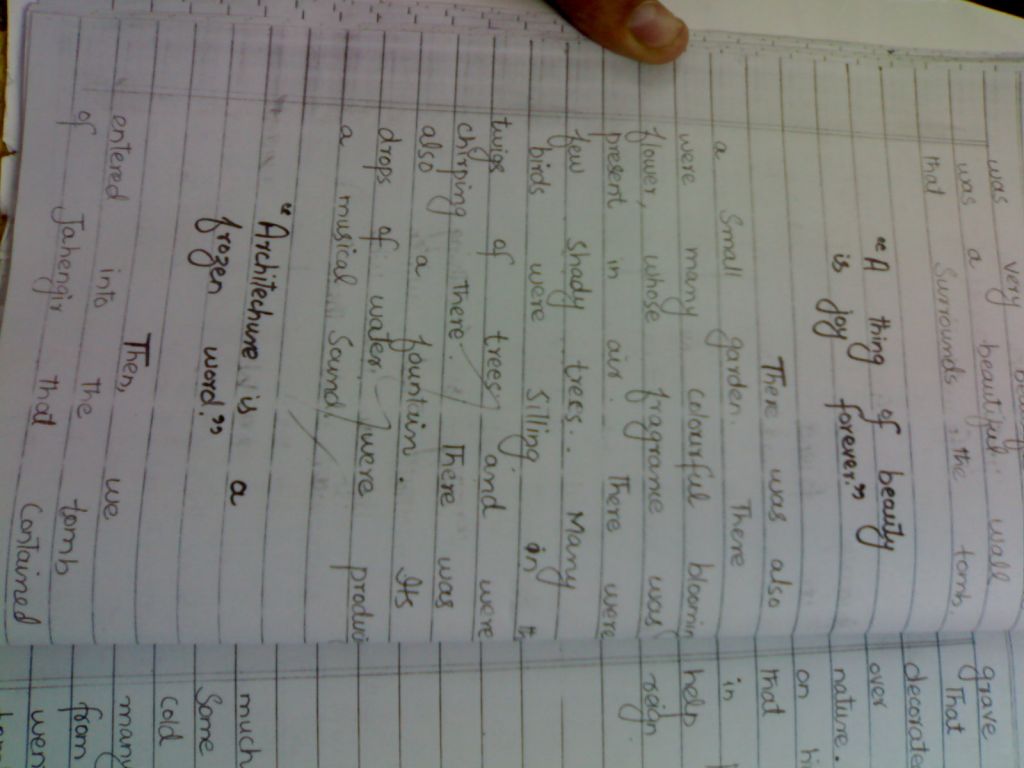 very
was beautiful. wall
was a
that Surrounds the tomb
"A thing of beauty
is joy forever."
There was also
a Small garden. There
were many colourful bloomin
flower, whose fragrame was
present in air. There were
few shady trees. Many
birds were silling in
twigs of trees and were
chirping there. There was
also a fountain. Its
drops of water were
a musical Sound produ
"Architechure is a
frozen word."
Then, we
entered into the tomb
of Jahengir that Contained
grave
That
decorate
over
nature.
on hi
that
in
help
reign
much
Some
cold
many
from
wen